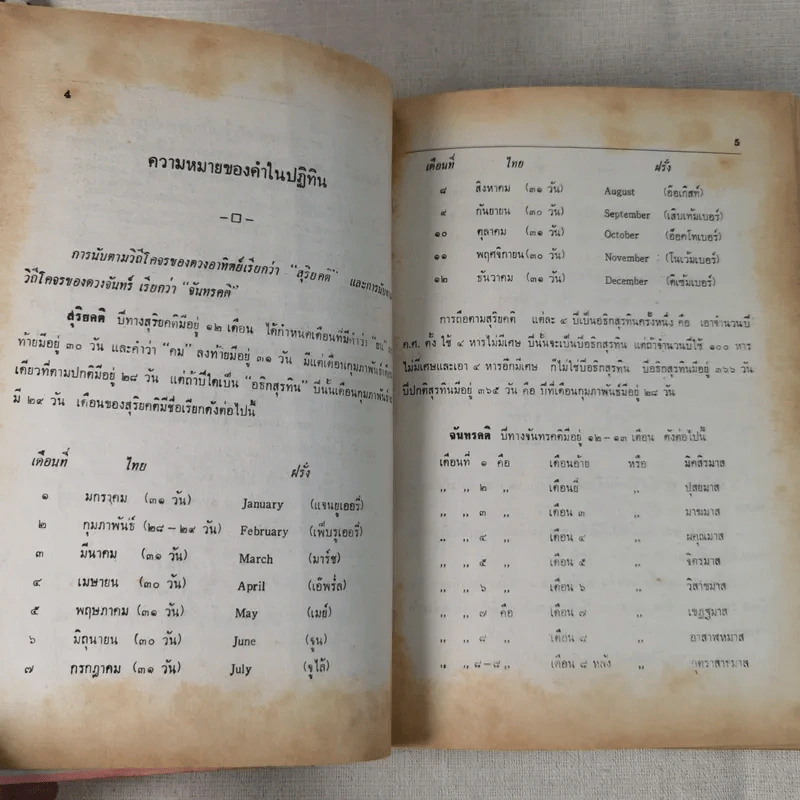 4
ความหมายของคำในปฏิทิน
การนับตามวิถีโคจรของดวงอาทิตย์เรียกว่า “สุริยคติ” และการนับตาม
วิถีโคจรของดวงจันทร์ เรียกว่า “จันทรคติ”
สุริยคติ ปีทางสุริยคติมีอยู่ ๑๒ เดือน ได้กำหนดเดือนที่มีคำว่า “ยน” ลง
ท้ายมีอยู่ ๓๐ วัน และคำว่า “คม” ลงท้ายมีอยู่ ๓๑ วัน มีแต่เดือนกุมภาพันธ์เดือน
เดียวที่ตามปกติมีอยู่ ๒๘ วัน แต่ถ้าปีใดเป็น “อธิกสุรทิน” ปีนั้นเดือนกุมภาพันธ์
มี ๒๙ วัน เดือนของสุริยคติมีชื่อเรียกดังต่อไปนี้
เดือนที่ ไทย ฝรั่ง
๑ มกราคม (๓๑ วัน) January (แจนยูเออรี่)
๒ กุมภาพันธ์ (๒๘ – ๒๙ วัน) February (เฟ็บรูเออรี่)
๓ มีนาคม (๓๑ วัน) March (มาร์ช)
๔ เมษายน (๓๐ วัน) April (เอ๊พริ่ล)
๕ พฤษภาคม (๓๑ วัน) May (เมย์)
๖ มิถุนายน (๓๐ วัน) June (จูน)
๗ กรกฎาคม (๓๑ วัน) July (จูไล้)
5
เดือนที่ ไทย ฝรั่ง
๘ สิงหาคม (๓๑ วัน) August (อ๊อเกิสท์)
๙ กันยายน (๓๐ วัน) September (เส็บเท้มเบอร์)
๑๐ ตุลาคม (๓๑ วัน) October (อ๊อคโทเบอร์)
๑๑ พฤศจิกายน (๓๐ วัน) November (โนเว้มเบอร์)
๑๒ ธันวาคม (๓๑ วัน) December (ดิเซ้มเบอร์)
การถือตามสุริยคติ แต่ละ ๔ ปีเป็นอธิกสุรทินครั้งหนึ่ง คือ เอาจำนวนปี
ค.ศ. ตั้ง ใช้ ๔ หารไม่มีเศษ ปีนั้นจะเป็นปีอธิกสุรทิน แต่ถ้าจำนวนปีใช้ ๑๐๐ หาร
ไม่มีเศษและเอา ๔ หารอีกมีเศษ ก็ไม่ใช่ปีอธิกสุรทิน ปีอธิกสุรทินมีอยู่ ๓๖๖ วัน
ปีปกติสุรทินมีอยู่ ๓๖๕ วัน คือ ปีที่เดือนกุมภาพันธ์มีอยู่ ๒๘ วัน
จันทรคติ ปีทางจันทรคติมีอยู่ ๑๒–๑๓ เดือน ดังต่อไปนี้
เดือนที่ ๑ คือ เดือนอ้าย หรือ มิคสิรมาส
,, ,, ๒ ,, เดือนยี่ ,, ปุสยมาส
,, ,, ๓ ,, เดือน ๓ ,, มาฆมาส
,, ,, ๔ ,, เดือน ๔ ,, ผคุณมาส
,, ,, ๕ ,, เดือน ๕ ,, จิตรมาส
,, ,, ๖ ,, เดือน ๖ ,, วิสาขมาส
,, ,, ๗ คือ เดือน ๗ ,, เชฏฐมาส
,, ,, ๘ ,, เดือน ๘ ,, อาสาฬหมาส
,, ,, ๘–๘ ,, เดือน ๘ หลัง ,, อุตราสาธมาส